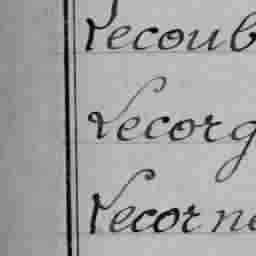 Lecoub
Lecorg
Lecorne